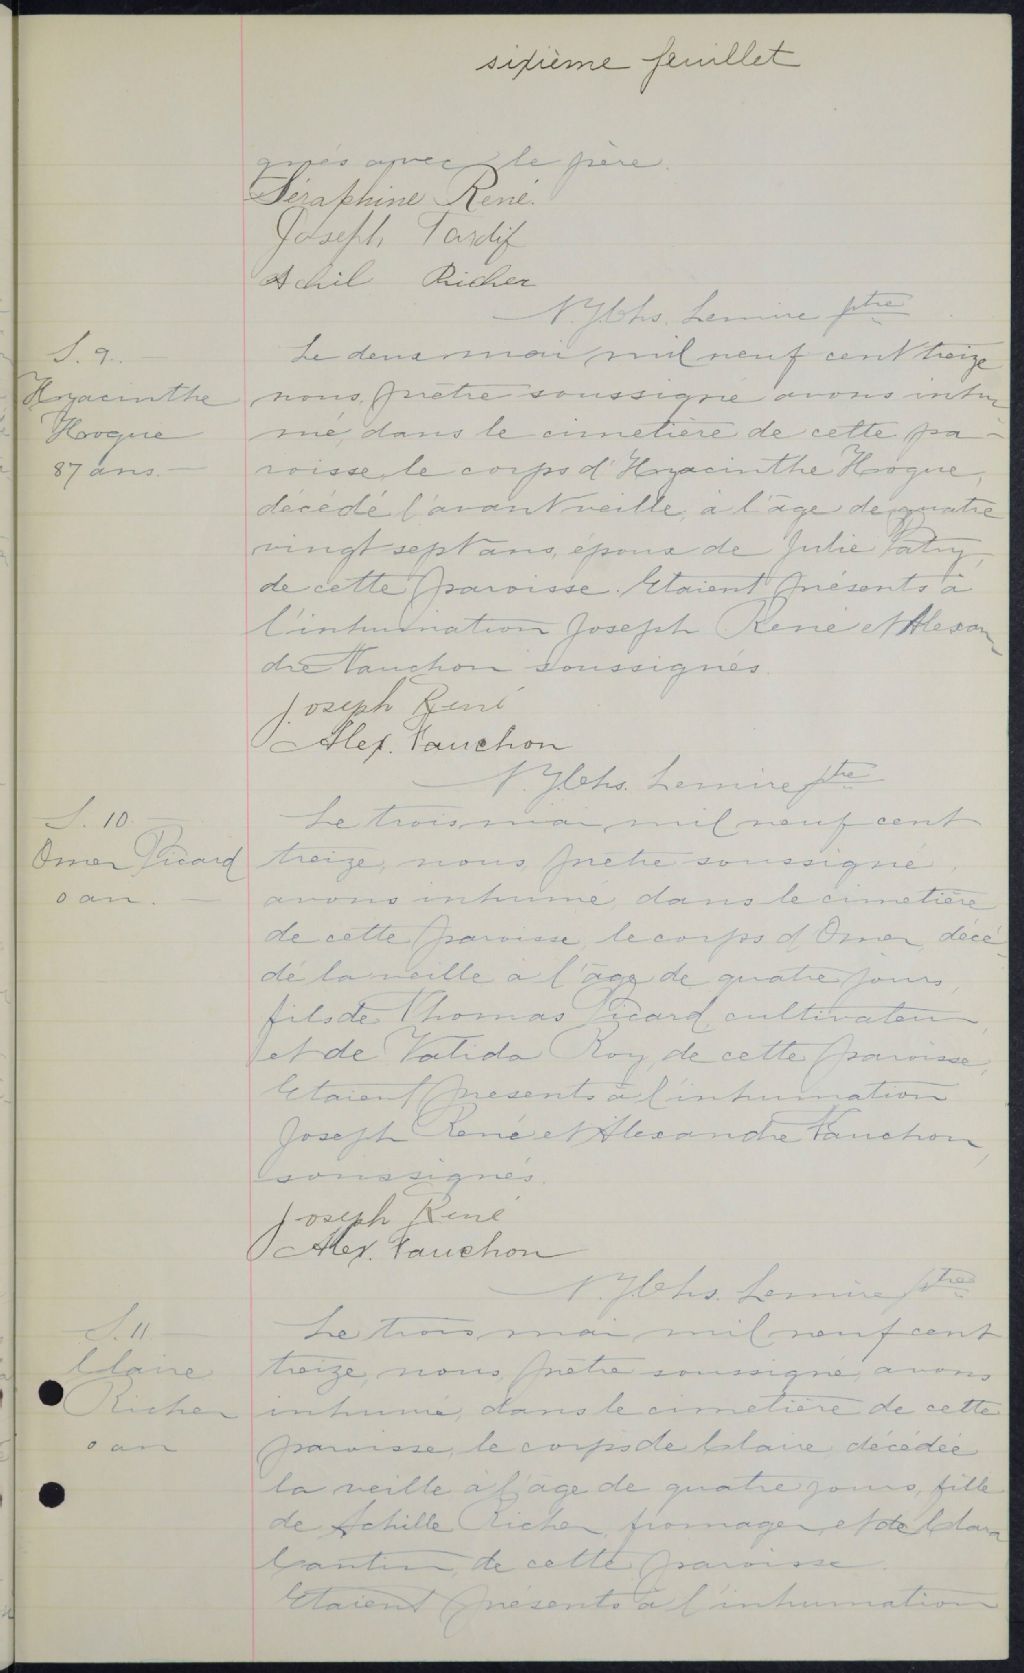 sixième feuillet
gnés avec le père.
Séraphine René.
Joseph Tardif
Achil Richer
N. J. Chs. Lemire ptre
S. 9. —
Hyacinthe
Hoogue
87 ans. —
Le deux mai mil neuf cent treize
nous, prêtre soussigné avons inhu
mé, dans le cimetière de cette pa-
roisse, le corps d'Hyacinthe Hogue,
décédé l'avant veille, à l'âge de quatre
vingt sept ans, époux de Julie Patry,
de cette paroisse. Etaient présents à
l'inhumation Joseph René et Alexan
dre Vauchon soussignés.
Joseph René
Alex. Vauchon
N. J. Chs. Lemire ptre
S. 10. —
Omer Picard
0 an. —
Le trois mai mil neuf cent
treize, nous, prêtre soussigné,
avons inhumé, dans le cimetière
de cette paroisse, le corps d'Omer, décé-
dé la veille à l'âge de quatre jours,
fils de Thomas Picard, cultivateur,
et de Valida Roy, de cette paroisse,
Etaient présents à l'inhumation
Joseph René et Alexandre Vauchon,
soussignés.
Joseph René
Alex. Vauchon
N. J. Chs. Lemire ptre
S. 11 —
Claire
Richer
0 an
Le trois mai mil neuf cent
treize, nous, prêtre soussigné, avons
inhumé, dans le cimetière de cette
paroisse, le corps de Claire, décédée
la veille à l'âge de quatre jours, fille
de Achille Richer, fromager, et de Clara
Cantin, de cette paroisse.
Etaient présents à l'inhumation